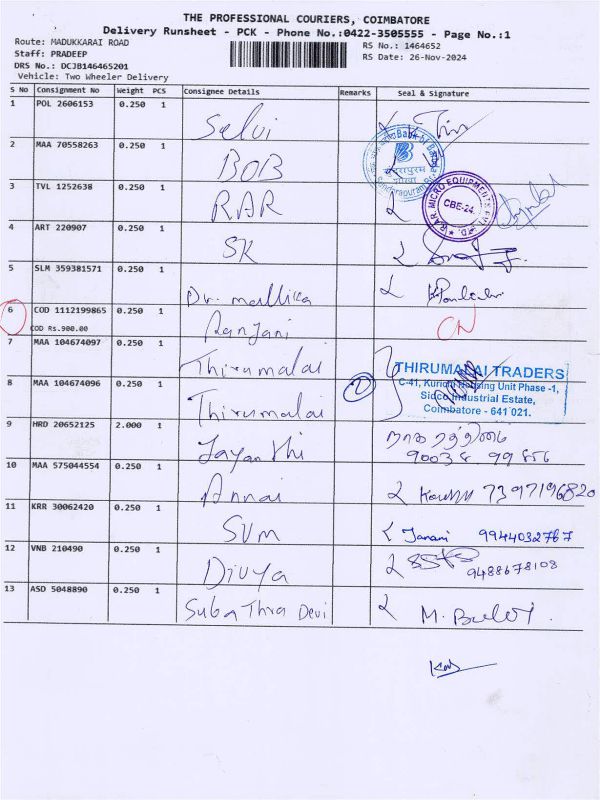 THE PROFESSIONAL COURIERS, COIMBATORE
Delivery Runsheet - PCK - Phone No.:0422-3505555 - Page No.:1
Route: MADUKKARAI ROAD
RS No.: 1464652
Staff: PRADEEP
RS Date: 26-Nov-2024
DRS No.: DCJB146465201
Vehicle: Two Wheeler Delivery
S No Consignment No Weight PCS Consignee Details Remarks Seal & Signature
1 POL 2606153 0.250 1 Selvi
2 MAA 70558263 0.250 1 BOB
Bank of Baroda
3 TVL 1252638 0.250 1 RAR
R.A.R. MICRO EQUIPMENTS PVT. LTD.
CBE-24.
4 ART 220907 0.250 1 SK
5 SLM 359381571 0.250 1 Dr. mallika
6 COD 1112199865 0.250 1 Ranjani CN
COD Rs.900.00
7 MAA 104674097 0.250 1 Thirumalai
8 MAA 104674096 0.250 1 Thirumalai 2
THIRUMALAI TRADERS
C-41, Kurichi Housing Unit Phase -1,
Sidco Industrial Estate,
Coimbatore - 641 021.
9 HRD 20652125 2.000 1 Jayanthi
90038 99856
10 MAA 575044554 0.250 1 Annai 7397196820
11 KRR 30062420 0.250 1 SVM Janani 9944032767
12 VNB 210490 0.250 1 Divya
9488678108
13 ASD 5048890 0.250 1 Suba Thra Devi